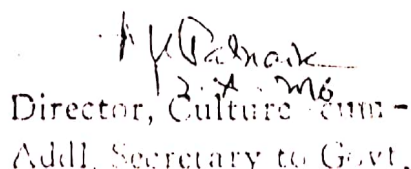 Patnaik
Director, Culture-cum-
Addl. Secretary to Govt.